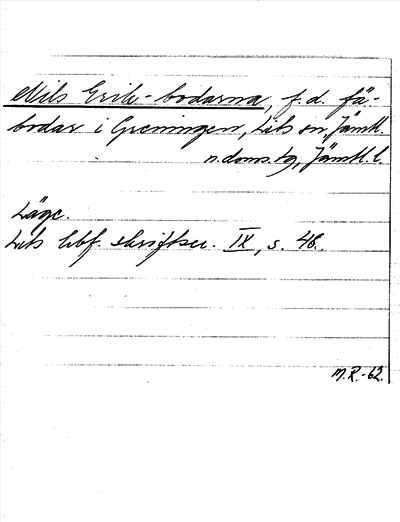 Nils Erik-bodarna, f.d. fä-
bodar i Greningen, Lits sn, Jämtl.
n.doms.tg, Jämtl.l.
Läge.
Lits hbf. skriftser. IX, s. 48.
M.R.-62.